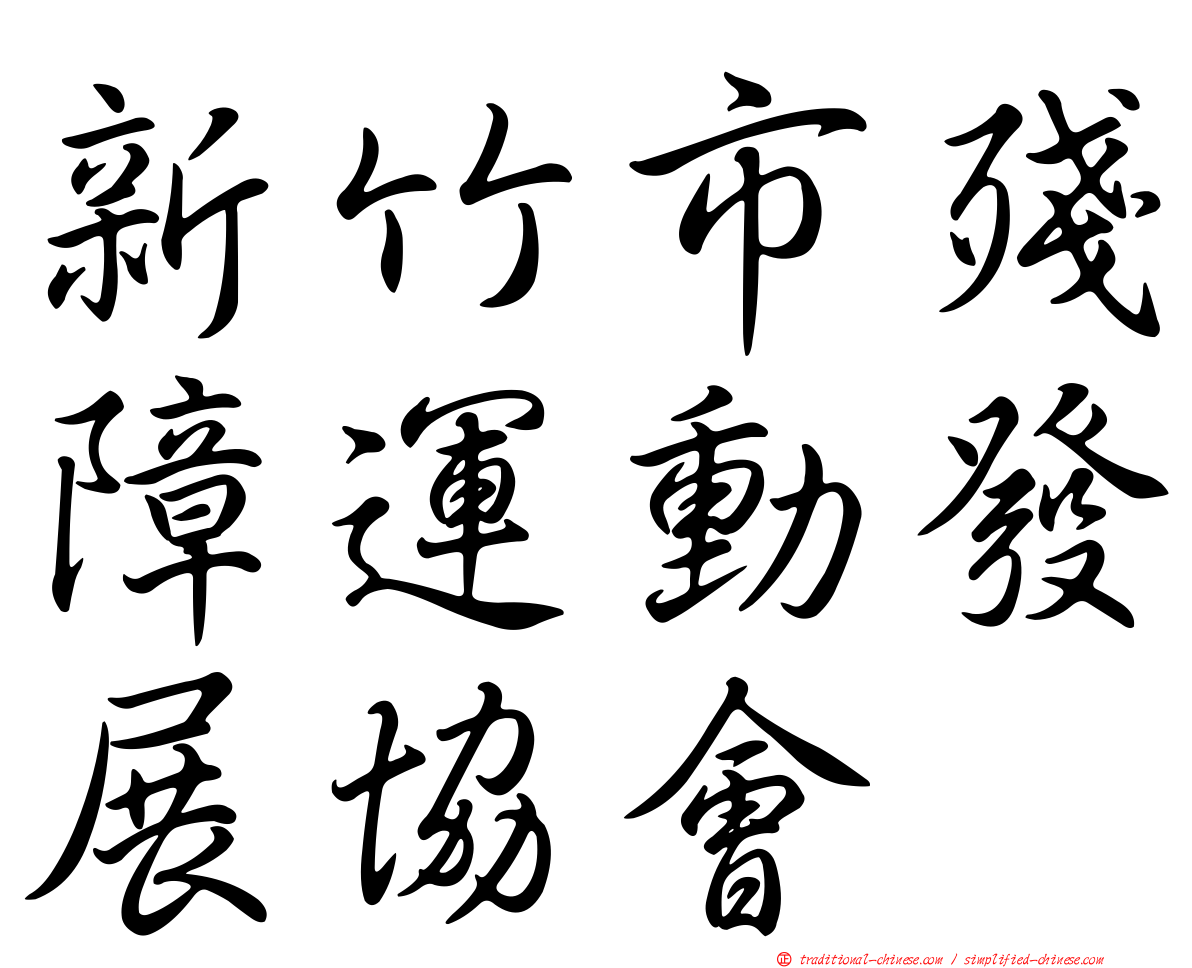 新竹市殘
障運動發
展協會
正 traditional-chinese.com / simplified-chinese.com